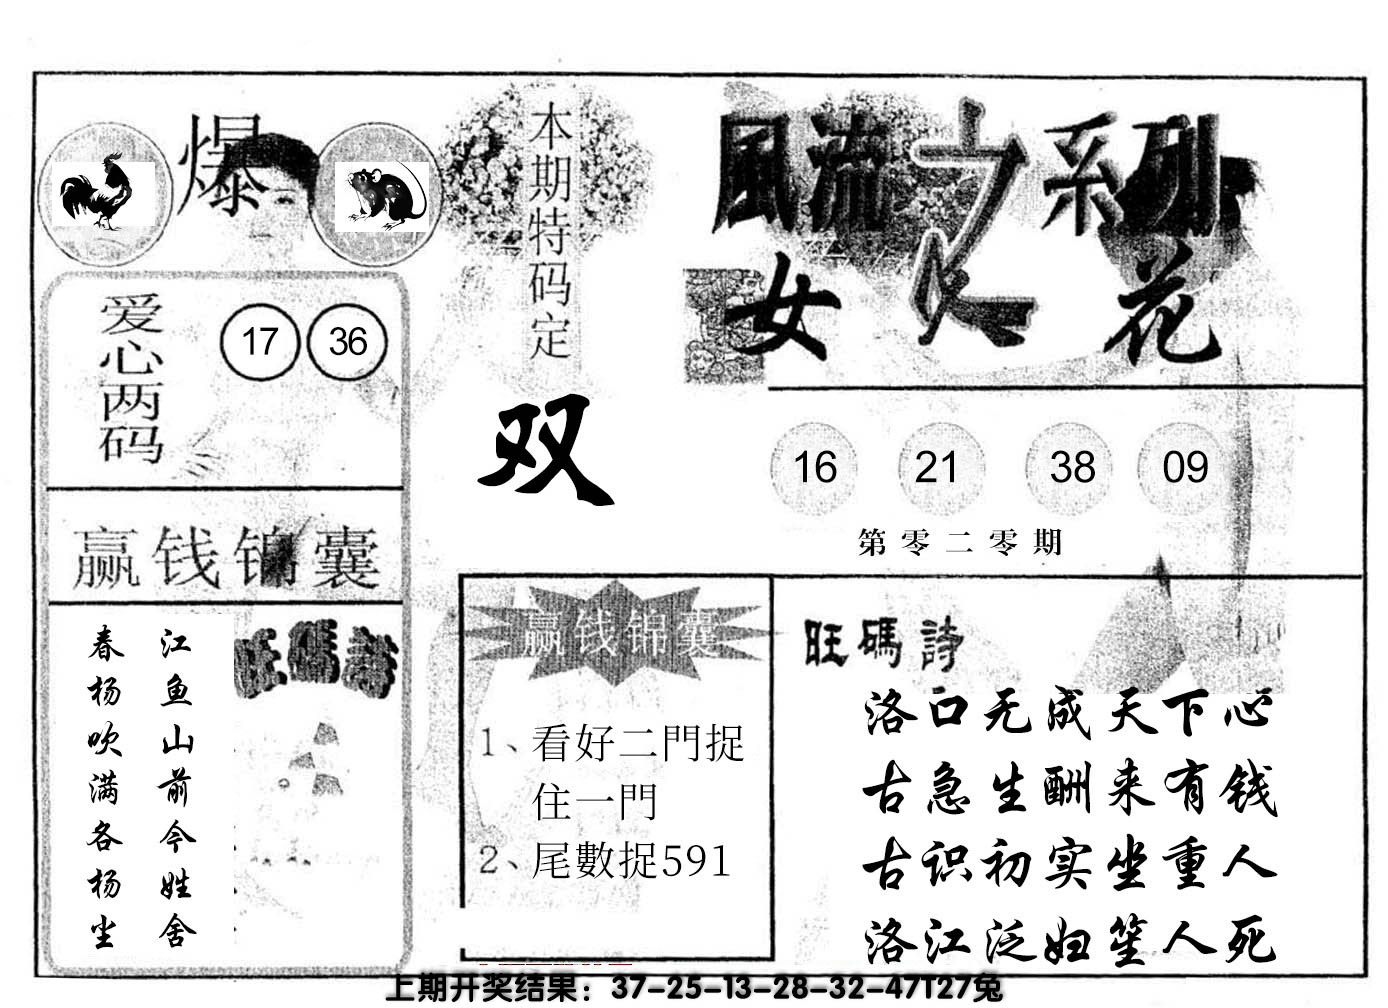 爆
本期特码定
双
爱心两码
17 36
赢钱锦囊
江鱼山前今姓舍
春杨吹满各杨坐
旺碼詩
風流之系列
女人花
16 21 38 09
第零二零期
赢钱锦囊
1、看好二門捉
住一門
2、尾數捉591
旺碼詩
洛口无成天下心
古急生酬来有钱
古识初实坐重人
洛江泛妇笙人死
上期开奖结果：37-25-13-28-32-47T27兔